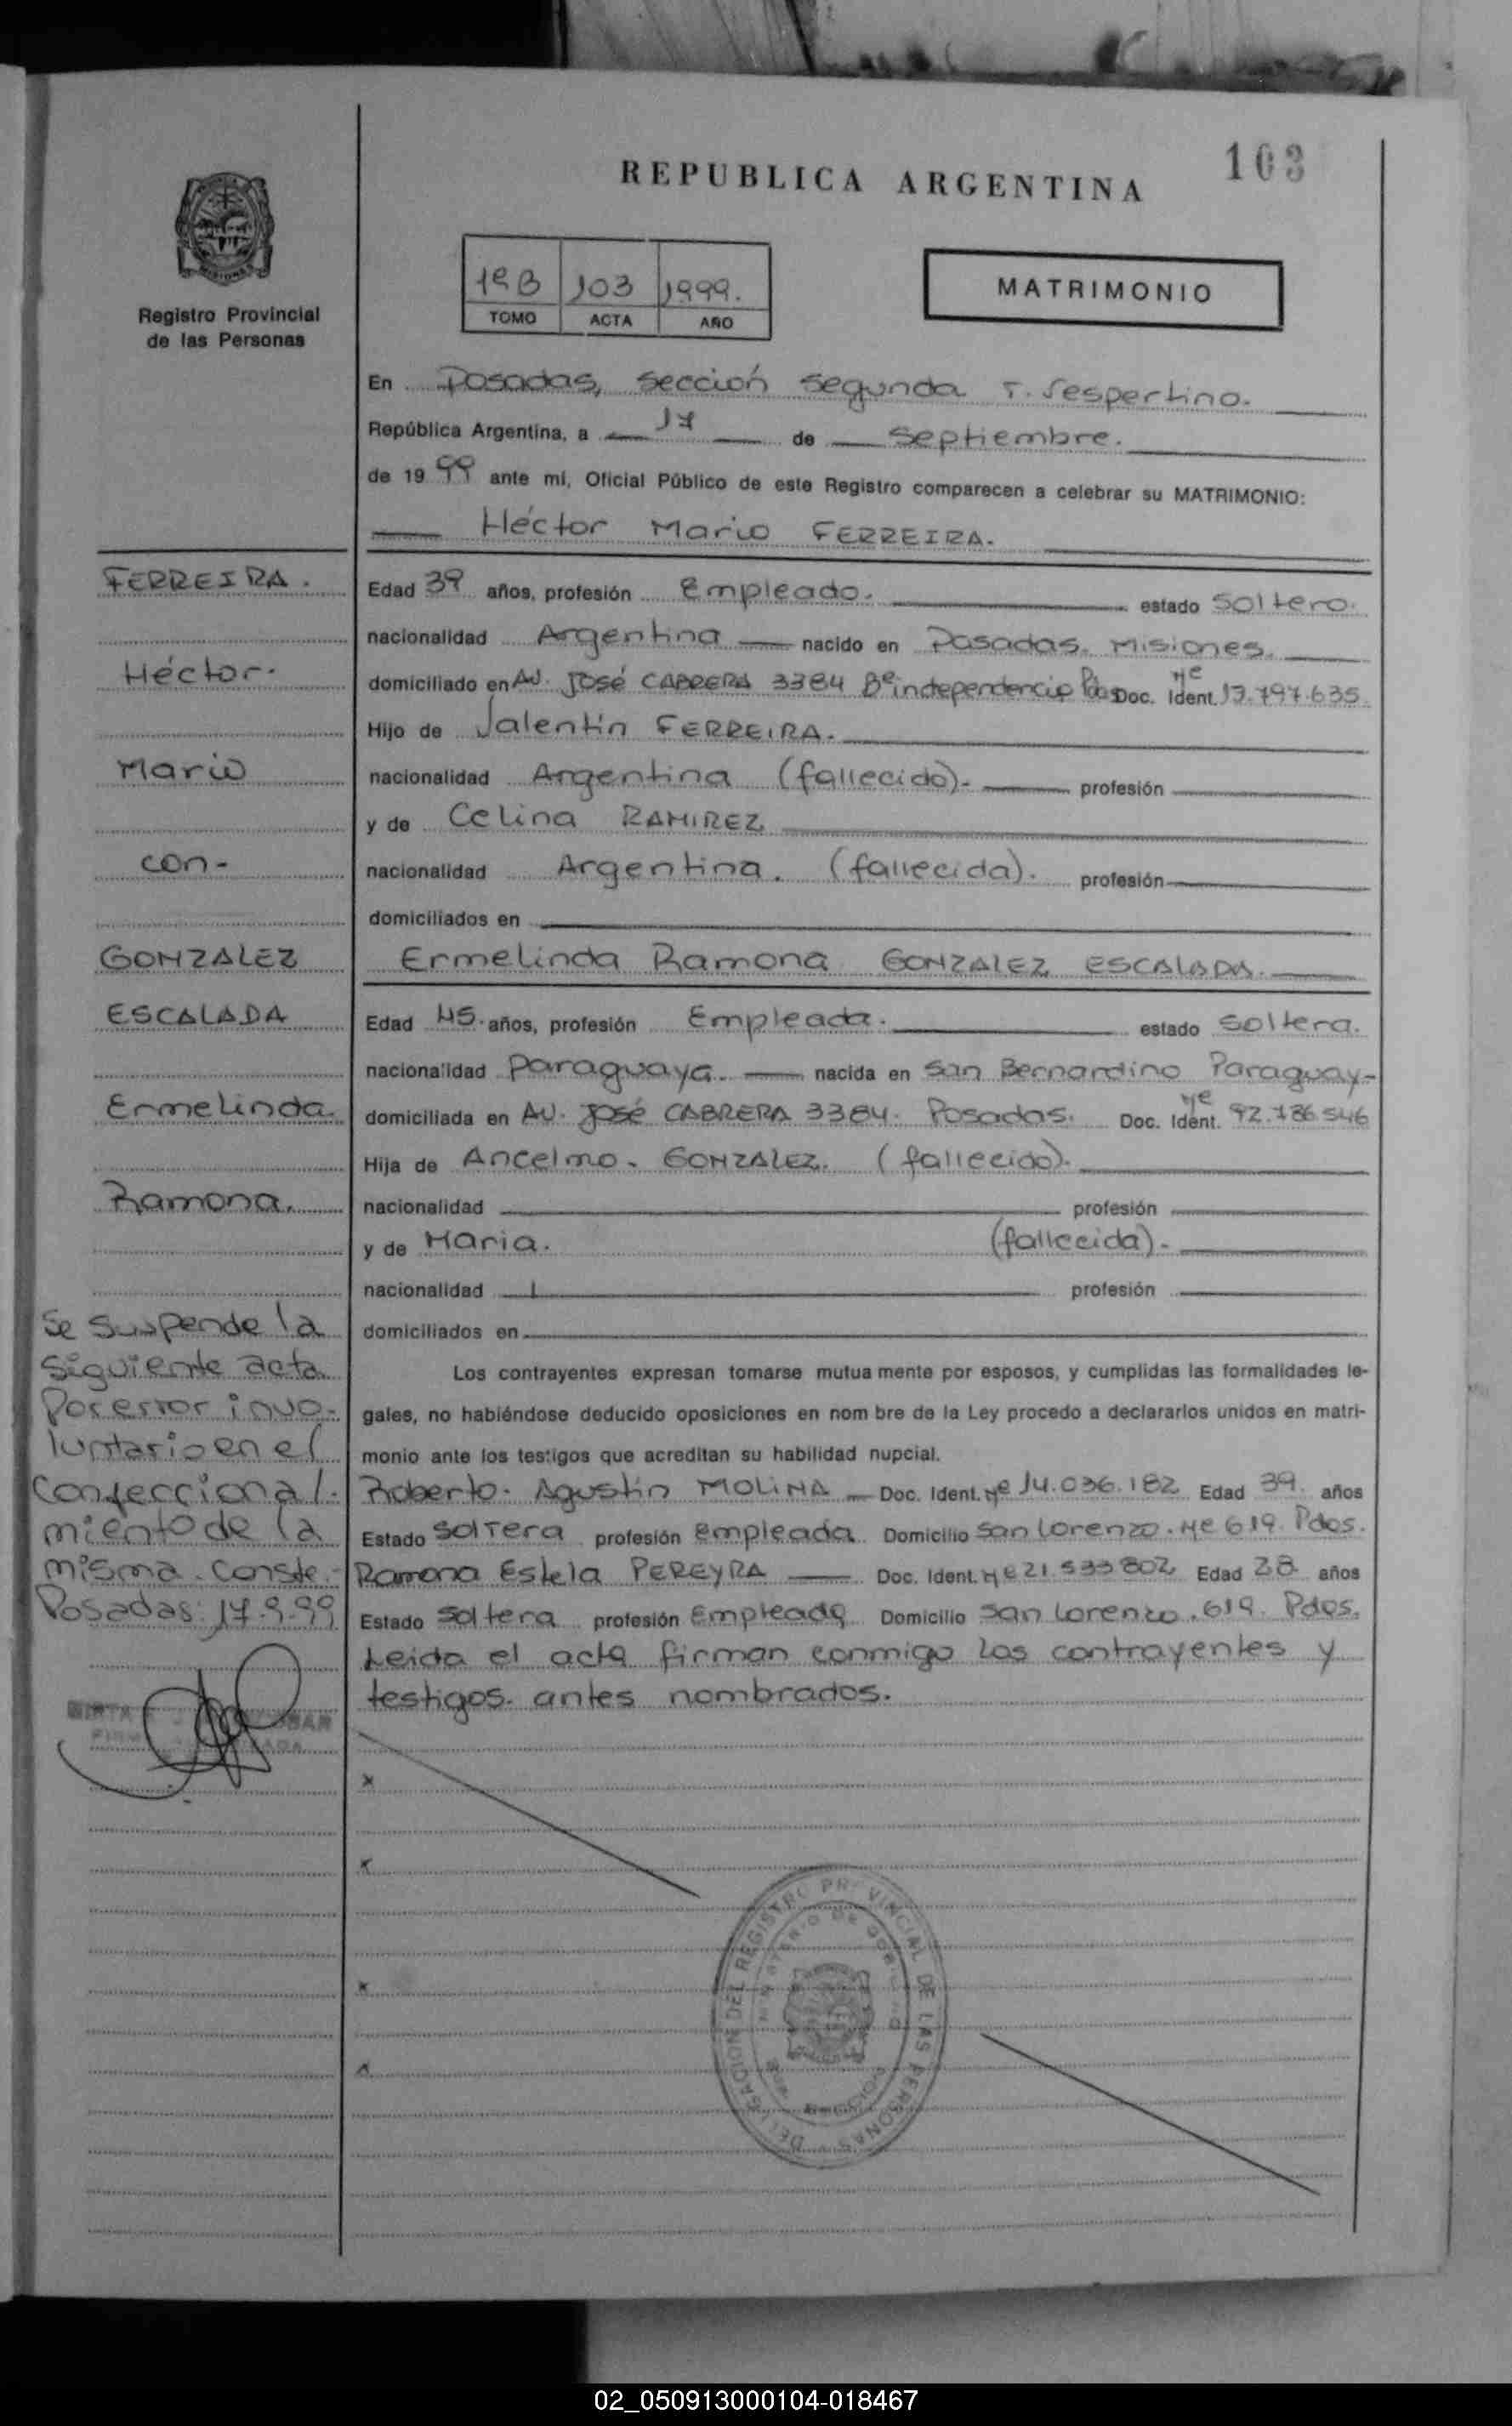 103
REPUBLICA ARGENTINA
1º B 103 1999.
TOMO ACTA AÑO
MATRIMONIO
Registro Provincial
de las Personas
En Posadas, sección segunda T. Vespertino.
República Argentina, a 17 de septiembre.
de 19 99 ante mi, Oficial Público de este Registro comparecen a celebrar su MATRIMONIO:
Héctor Mario FERREIRA.
FERREIRA.
Héctor.
Mario
con-
GONZALEZ
ESCALADA
Ermelinda.
Ramona.
Se suspende la
siguiente acta
Por error invo-
luntario en el
Confecciona/-
miento de la
misma. Conste.-
Posadas: 17.9.99
Edad 39 años, profesión Empleado. estado Soltero.
nacionalidad Argentina nacido en Posadas. Misiones.
domiciliado en Av. José CABRERA 3384 Bº independencia Pdas Doc. Ident. Nº 13.797.635
Hijo de Valentín FERREIRA.
nacionalidad Argentina (fallecido).- profesión
y de Celina RAMIREZ
nacionalidad Argentina. (fallecida). profesión
domiciliados en
Ermelinda Ramona GONZALEZ ESCALADA.
Edad 45. años, profesión Empleada. estado soltera.
nacionalidad Paraguaya. nacida en San Bernardino Paraguay-
domiciliada en AV. José CABRERA 3384. Posadas. Doc. Ident. Nº 92.786546
Hija de Ancelmo. GONZALEZ. (fallecido).
nacionalidad profesión
y de Maria. (fallecida).-
nacionalidad profesión
domiciliados en
Los contrayentes expresan tomarse mutua mente por esposos, y cumplidas las formalidades le-
gales, no habiéndose deducido oposiciones en nom bre de la Ley procedo a declararlos unidos en matri-
monio ante los testigos que acreditan su habilidad nupcial.
Roberto. Agustín MOLINA Doc. Ident. Nº 14.036.182 Edad 39. años
Estado soltera profesión empleada Domicilio San Lorenzo. Nº 619. Pdas.
Ramona Estela PEREYRA Doc. Ident. Nº 21.533802 Edad 28 años
Estado soltera profesión Empleada Domicilio San Lorenzo. 619. Pdas.
Leida el acta firman conmigo los contrayentes y
testigos. antes nombrados.
DELEGACION DEL REGISTRO PROVINCIAL DE LAS PERSONAS
02_050913000104-018467